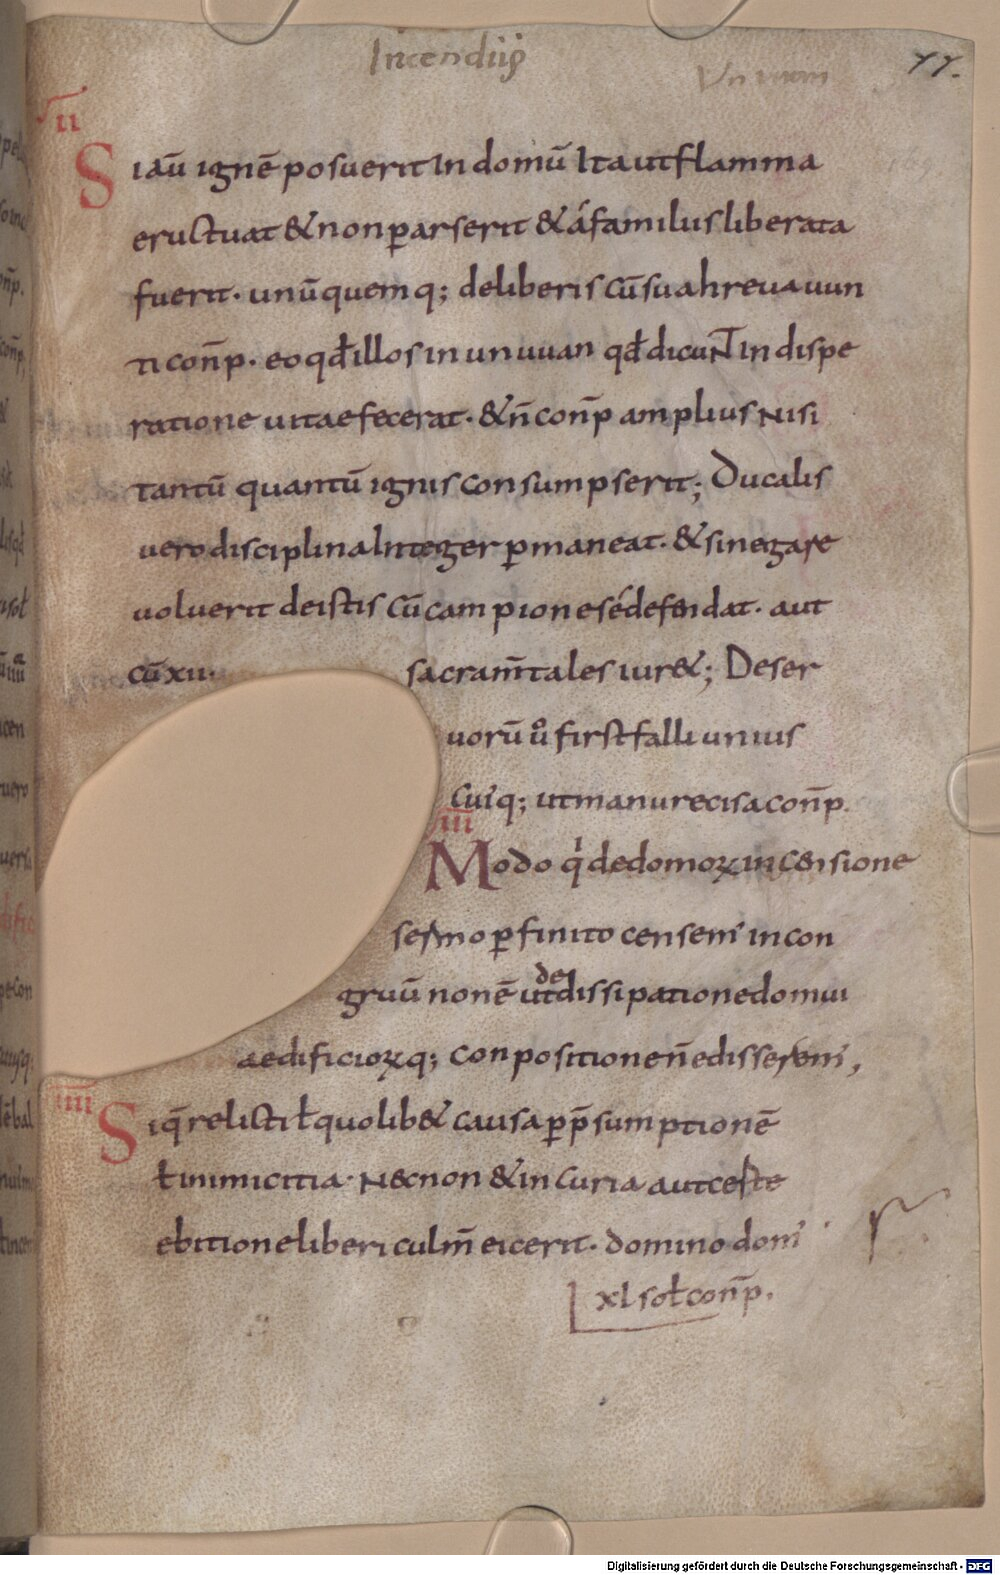 Incendiis
77.
II
Si aū ignē posuerit In domū Ita ut flamma
eructuat & non parserit & á familus liberata
fuerit· unūquemq; de liberis cū sua hrevauun
ti conp̄· eo qđ illos in unuuan qđ dicuNT in dispe
ratione uitae fecerat· & n̄ conp̄ amplius Nisi
tantū quantū ignis consumpserit; Ducalis
vero disciplina Integer ꝑmaneat· & si negare
voluerit de istis cū campione sé defendat· aut
cū xii· sacram̄tales iur&; De ser
uorū ů firstfalli unius
cuiq; ut manu recisa conp̄
III
Modo q̇ de domoꝝ incensione
sermo ꝑfinito censem' incon
gruū non ē ut de dissipatione domui
aedificioꝝq; conpositione n̄ edisserem',
IIII
Si q̄ relicti ł quolib& causa ꝑ p̄sumptionē
ł inimicitia· Necnon & in curia aut ceste
ebitione liberi culm̄ eicerit· domino dom'
xl soł conp̄.
Digitalisierung gefördert durch die Deutsche Forschungsgemeinschaft - DFG